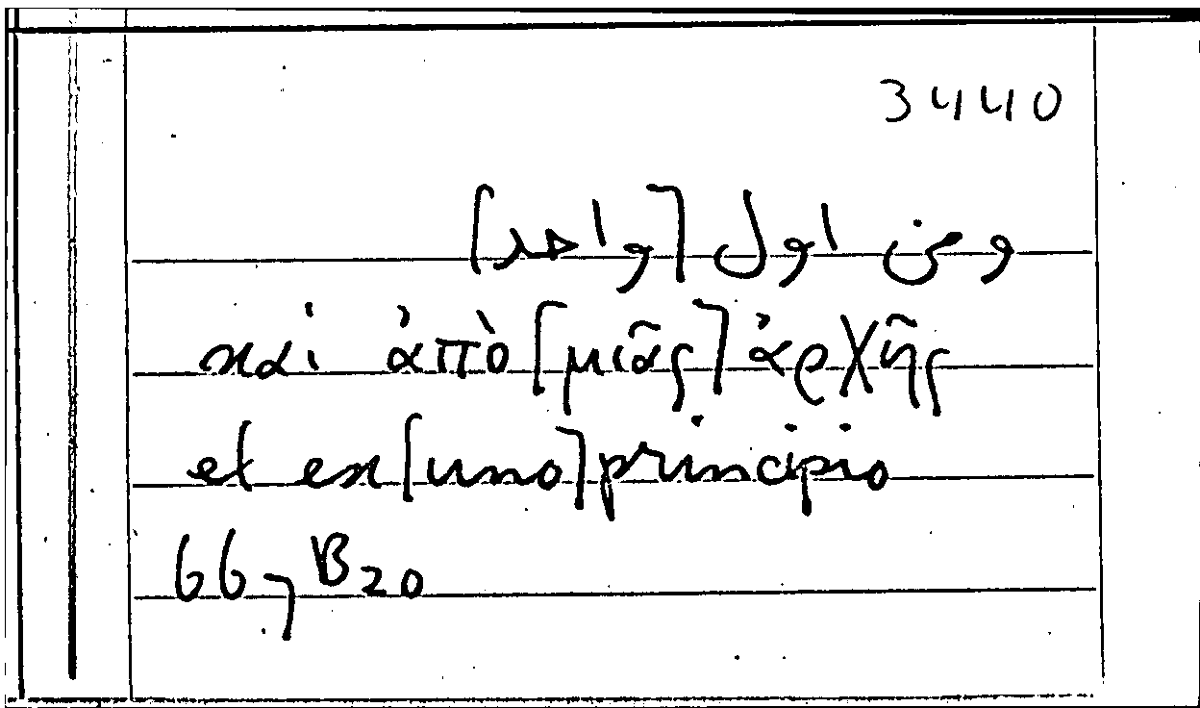 3440
ومن اول [واحد]
καὶ ἀπὸ [μιᾶς] ἀρχῆς
et ex [uno] principio
66, B20